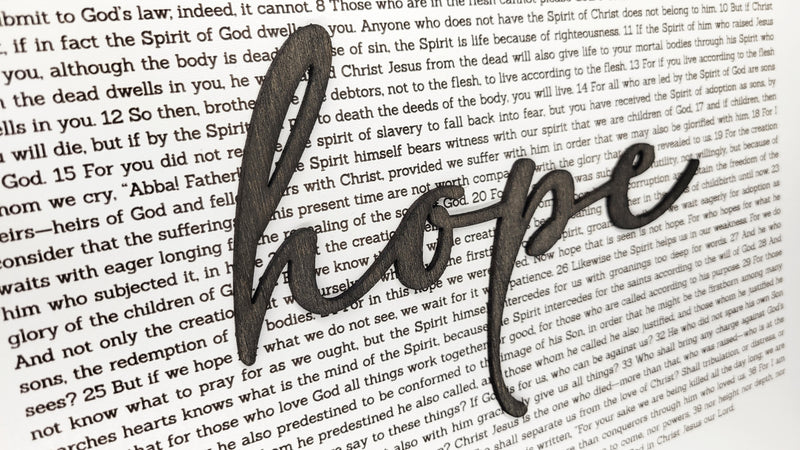 hope
ibmit to God's law; indeed, it cannot. 8 Those who are in the flesh cannot
, if in fact the Spirit of God dwells you. Anyone who does not have the Spirit of Christ does not belong to him. 10 But if Christ
you, although the body is dead se of sin, the Spirit is life because of righteousness. 11 If the Spirit of him who raised Jesus
the dead dwells in you, he w Christ Jesus from the dead will also give life to your mortal bodies through his Spirit who
ells in you. 12 So then, brothe debtors, not to the flesh, to live according to the flesh. 13 For if you live according to the flesh
will die, but if by the Spirit to death the deeds of the body, you will live. 14 For all who are led by the Spirit of God are sons
God. 15 For you did not re spirit of slavery to fall back into fear, but you have received the Spirit of adoption as sons, by
hom we cry, “Abba! Father! Spirit himself bears witness with our spirit that we are children of God, 17 and if children, then
eirs—heirs of God and fell s with Christ, provided we suffer with him in order that we may also be glorified with him. 18 For I
consider that the sufferings his present time are not worth comp with the glory that revealed to us. 19 For the creation
waits with eager longing f the revealing of the so God. 20 For was sub futility, not willingly, but because of
him who subjected it, in h the creati corruption the freedom of the
glory of the children of G we know creati of childbirth until now. 23
And not only the creatio ourselve the first wait eagerly for adoption as
sons, the redemption of bodies. For in this hope we were Now hope that is seen is not hope. For who hopes for what he
sees? 25 But if we hope what we do not see, we wait for it w patience. 26 Likewise the Spirit helps us in our weakness. For we do
not know what to pray for as we ought, but the Spirit himself intercedes for us with groanings too deep for words. 27 And he who
arches hearts knows what is the mind of the Spirit, because Spirit intercedes for the saints according to the will of God. 28 And
that for those who love God all things work together good, for those who are called according to his purpose. 29 For those
he also predestined to be conformed to the image of his Son, in order that he might be the firstborn among many
m he predestined he also called, and those whom he called he also justified, and those whom he justified he
say to these things? If God is for us, who can be against us? 32 He who did not spare his own Son
also with him graciously give us all things? 33 Who shall bring any charge against God's
Christ Jesus is the one who died—more than that, who was raised—who is at the
shall separate us from the love of Christ? Shall tribulation, or distress, or
written, “For your sake we are being killed all the day long; we are
than conquerors through him who loved us. 38 For I am
to come, nor powers, 39 nor height nor depth, nor
in Christ Jesus our Lord.